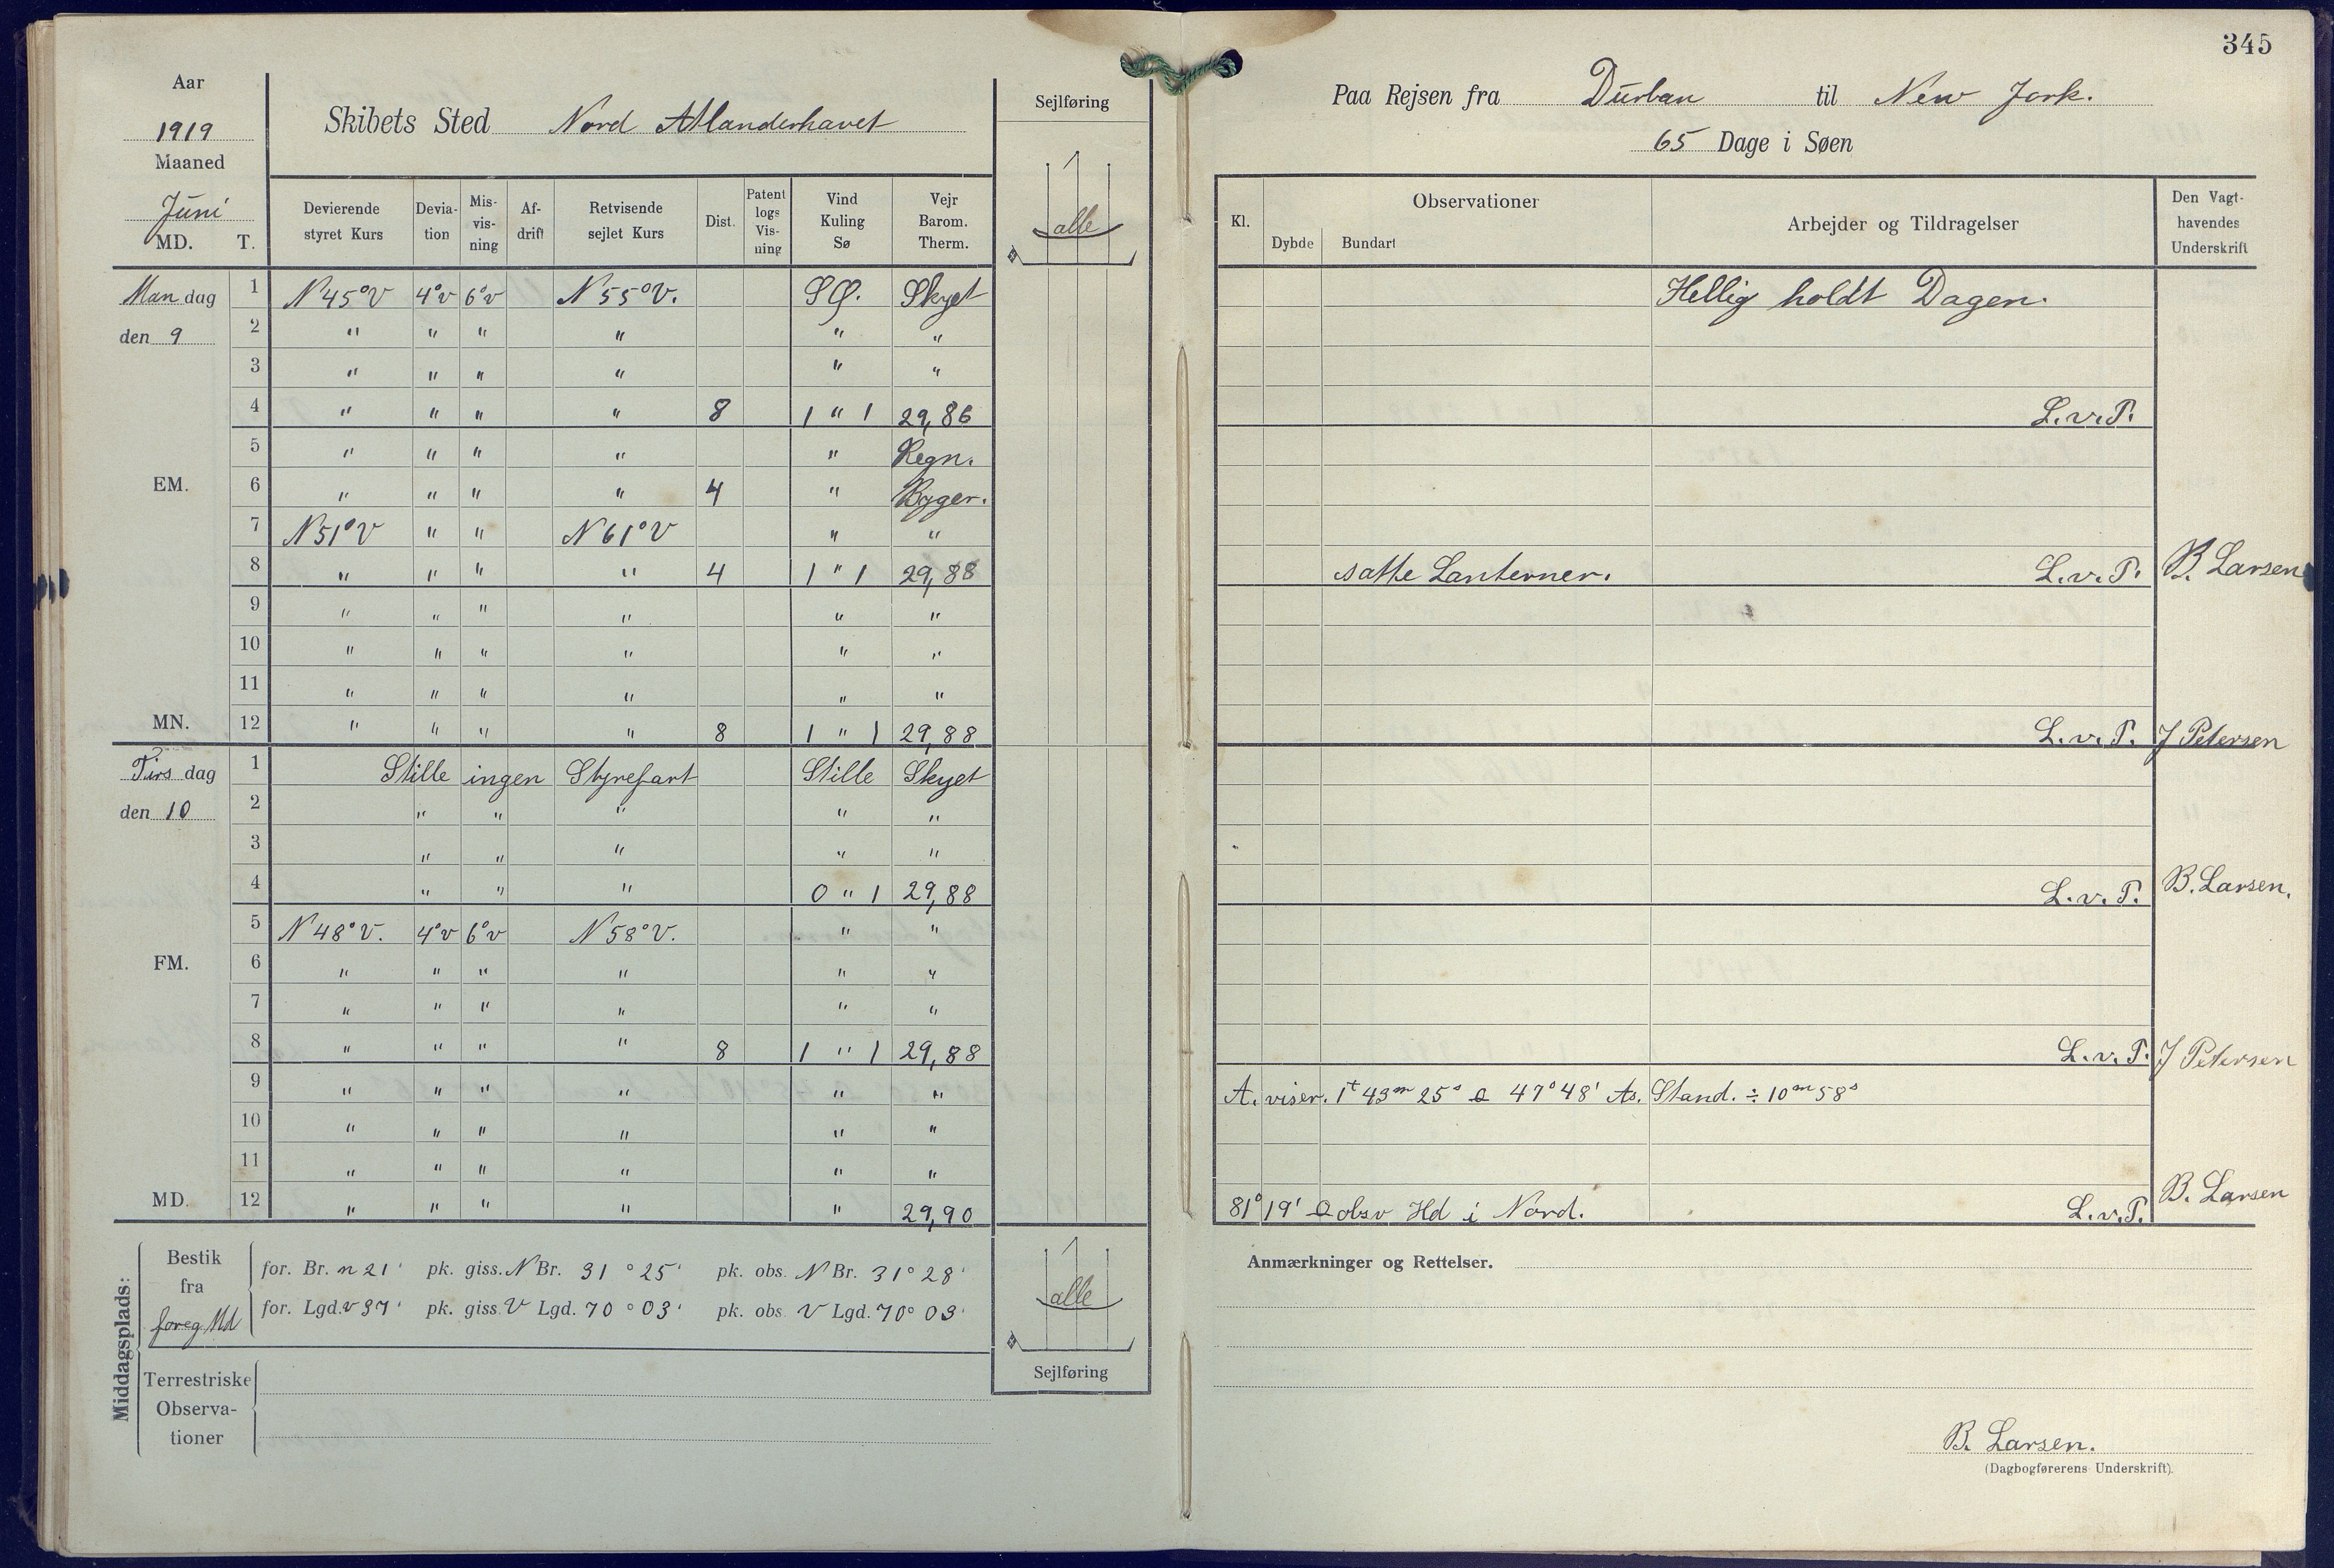 345
Aar
1919
Maaned
Juni
MD. T.
Skibets Sted Nord Atlanderhavet
Sejlføring
alle
Devierende styret Kurs | Devia-tion | Mis-vis-ning | Af-drift | Retvisende sejlet Kurs | Dist. | Patent logs Vis-ning | Vind Kuling Sø | Vejr Barom. Therm.
Man dag 1 N 45° V 4° v 6° v N 55° V. SØ. Skyet
den 9 2 " " " " " "
3 " " " " " "
4 " " " " 8 1 " 1 29,86
5 " " " " " Regn.
EM. 6 " " " " 4 " Byger.
7 N 51° V " " N 61° V " "
8 " " " " 4 1 " 1 29,88
9 " " " " " "
10 " " " " " "
11 " " " " " "
MN. 12 " " " " 8 1 " 1 29,88
Tirs dag 1 Stille ingen Styrefart Stille Skyet
den 10 2 " " " " "
3 " " " " "
4 " " " 0 " 1 29,88
5 N 48° V. 4° v 6° v N 58° V. " "
FM. 6 " " " " " "
7 " " " " " "
8 " " " " 8 1 " 1 29,88
9 " " " " " "
10 " " " " " "
11 " " " " " "
MD. 12 " " " " " 29,90
Middagsplads:
Bestik fra foreg Md
for. Br. n 21' pk. giss. N Br. 31° 25' pk. obs. N Br. 31° 28'
for. Lgd. v 37' pk. giss. V Lgd. 70° 03' pk. obs. V Lgd. 70° 03'
Terrestriske Observa-tioner
alle
Sejlføring
Paa Rejsen fra Durban til New Jork.
65 Dage i Søen
Kl. | Observationer | Dybde | Bundart | Arbejder og Tildragelser | Den Vagt-havendes Underskrift
Hellig holdt Dagen.
L.v.P.
satte Lanterner. L.v.P. B. Larsen
L.v.P. J Petersen
L.v.P. B. Larsen.
L.v.P. J Petersen
A. viser. 1t 43m 25s 47° 48' As. Stand. ÷ 10m 58s
81° 19' obsv Hd i Nord. L.v.P. B. Larsen
Anmærkninger og Rettelser.
B. Larsen.
(Dagbogførerens Underskrift).